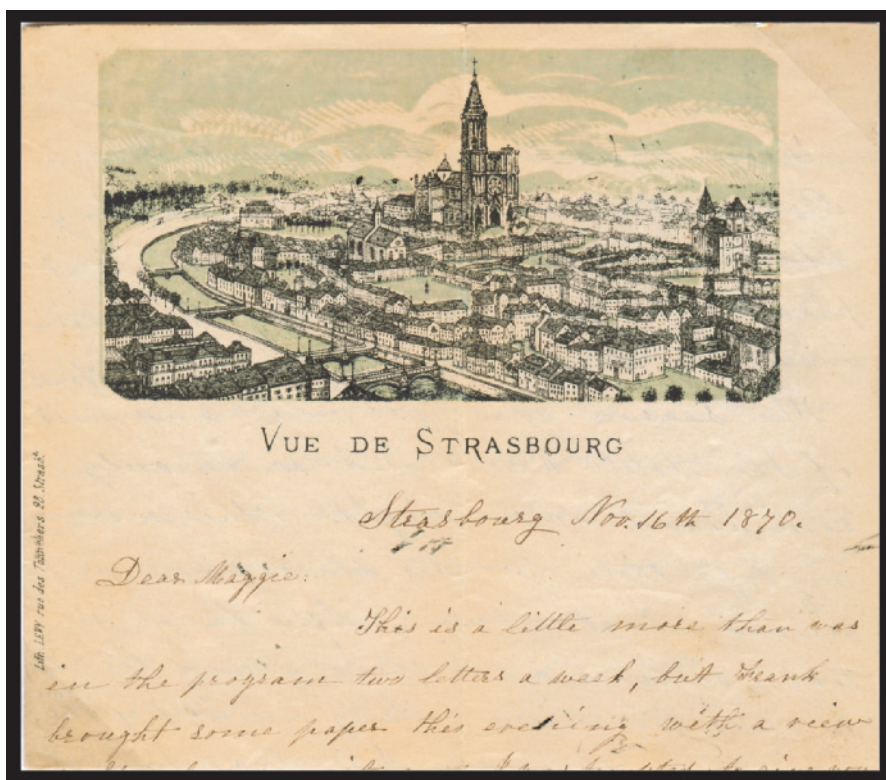 VUE DE STRASBOURG
Lith. LEVY rue des Tonneliers. 20 Strasbg
Strasbourg Nov. 16th 1870.
Dear Maggie:
This is a little more than was
in the program two letters a week, but Frank
brought some paper this evening with a view